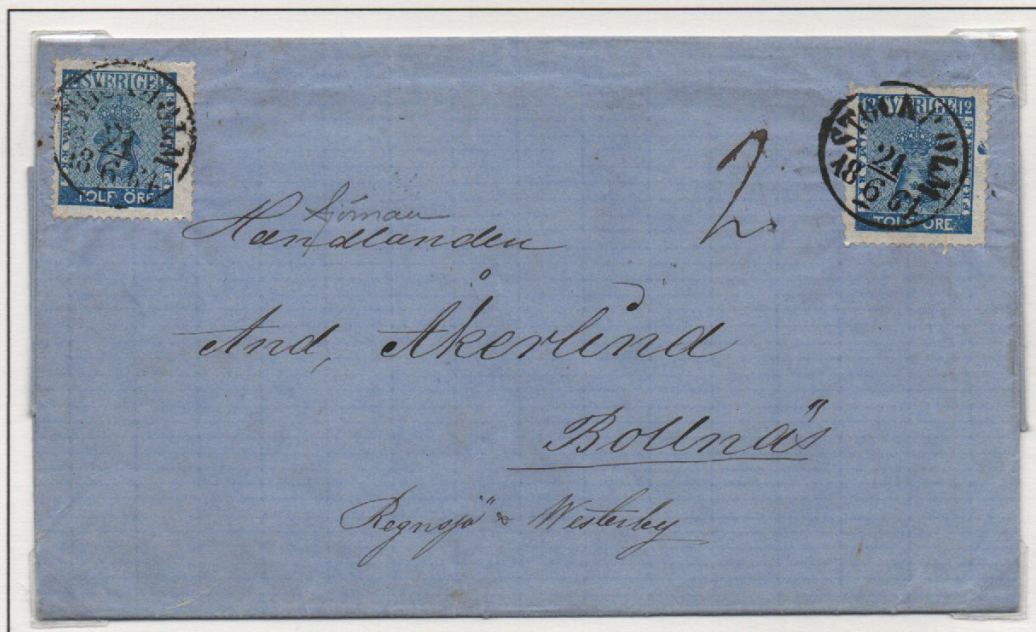 12 SVERIGE 12
STOCKHOLM
21
18 6 61
TOLF ÖRE
SVERIGE 12
STOCKHOLM
21
18 6 61
TOLF ÖRE
2.
Handlanden
And, Åkerlind
Bollnäs
Regnsjö & Westerby